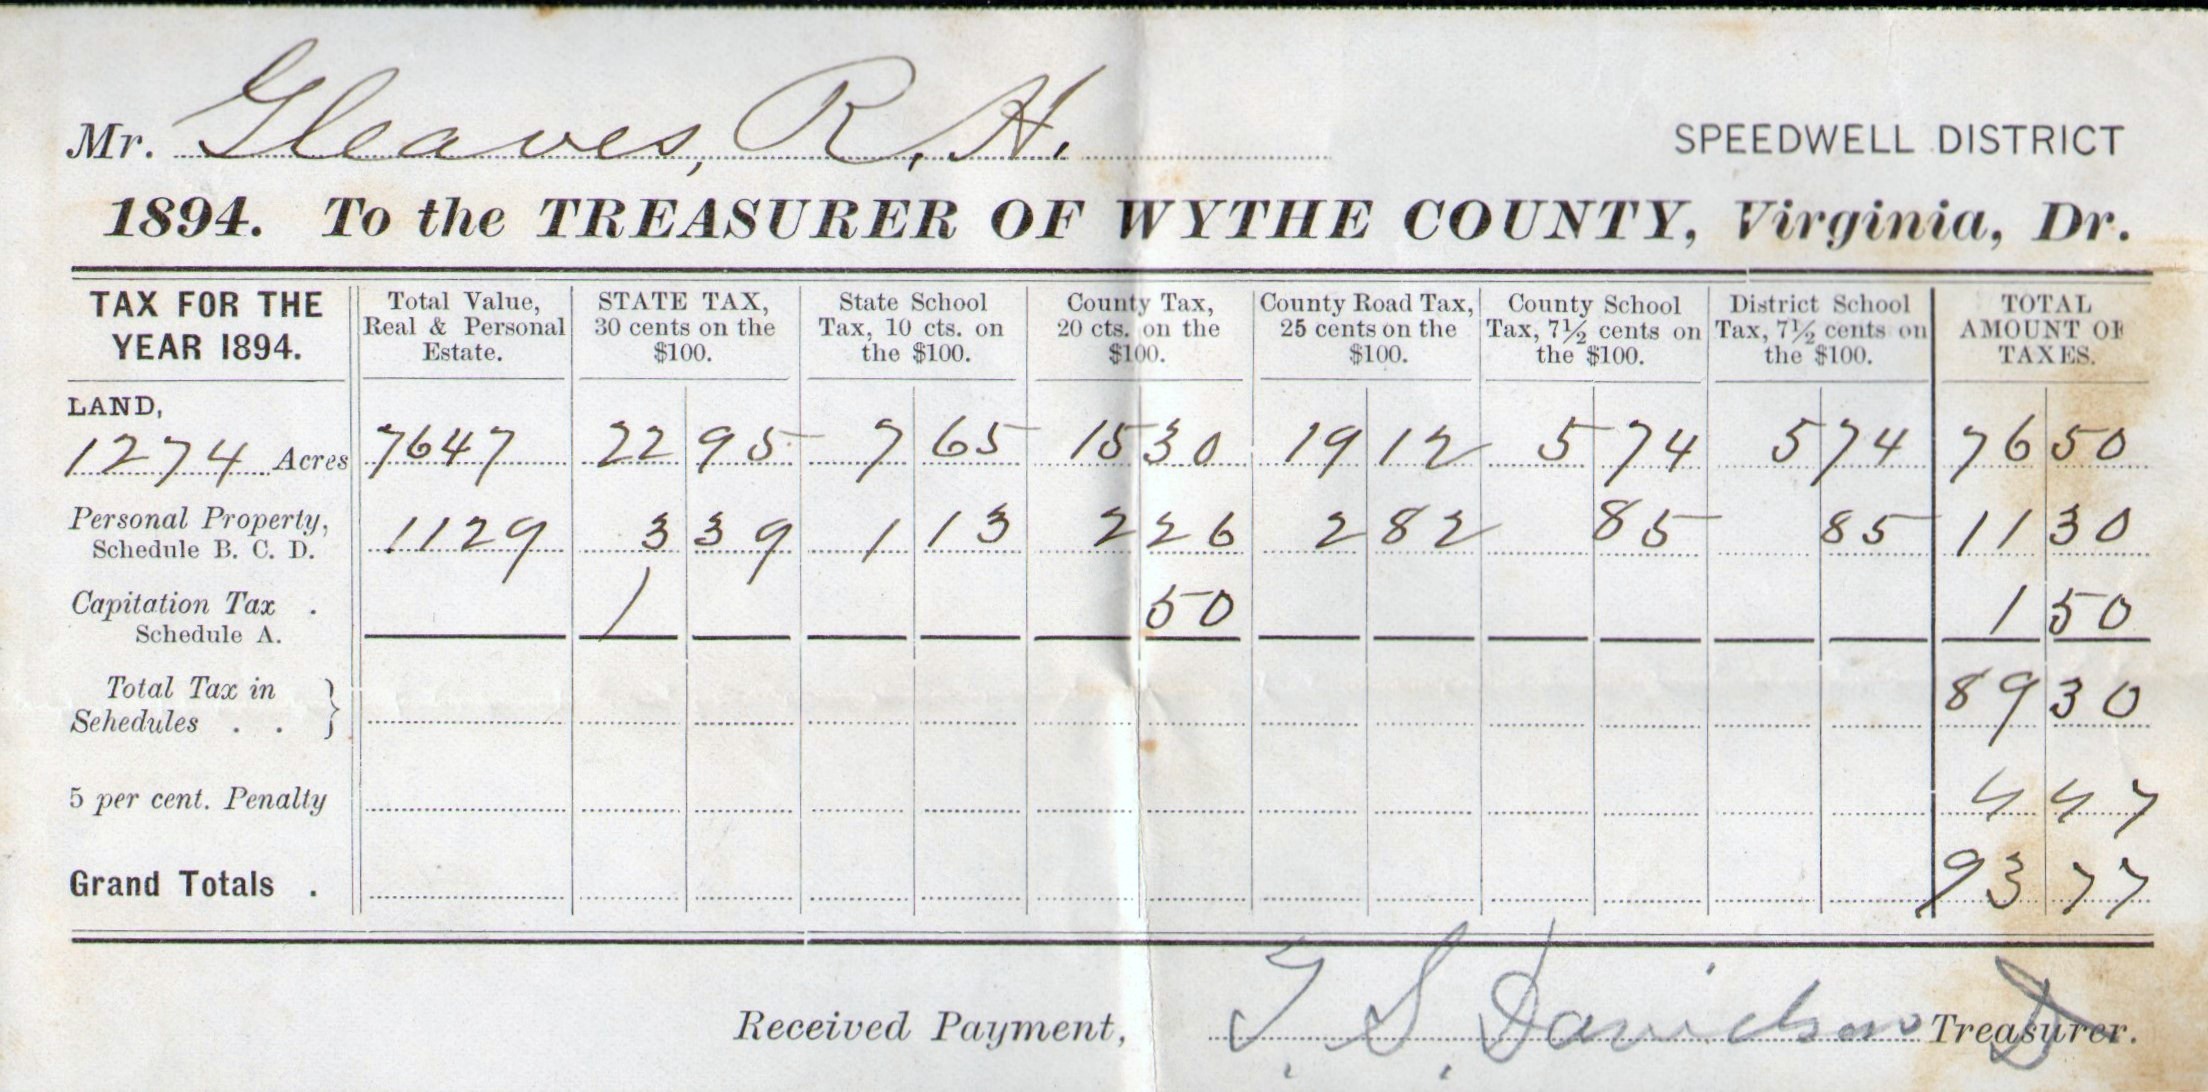 Mr. Gleaves, R. H.
SPEEDWELL DISTRICT
1894. To the TREASURER OF WYTHE COUNTY, Virginia, Dr.
TAX FOR THE YEAR 1894. Total Value, Real & Personal Estate. STATE TAX, 30 cents on the $100. State School Tax, 10 cts. on the $100. County Tax, 20 cts. on the $100. County Road Tax, 25 cents on the $100. County School Tax, 7½ cents on the $100. District School Tax, 7½ cents on the $100. TOTAL AMOUNT OF TAXES.
LAND,
1274 Acres 7647 22 95 7 65 15 30 19 12 5 74 5 74 76 50
Personal Property, Schedule B. C. D. 1129 3 39 1 13 2 26 2 82 85 85 11 30
Capitation Tax . Schedule A. 1 50 1 50
Total Tax in Sehedules . . } 89 30
5 per cent. Penalty 4 47
Grand Totals . 93 77
Received Payment, T. S. Davidson Treasurer. D